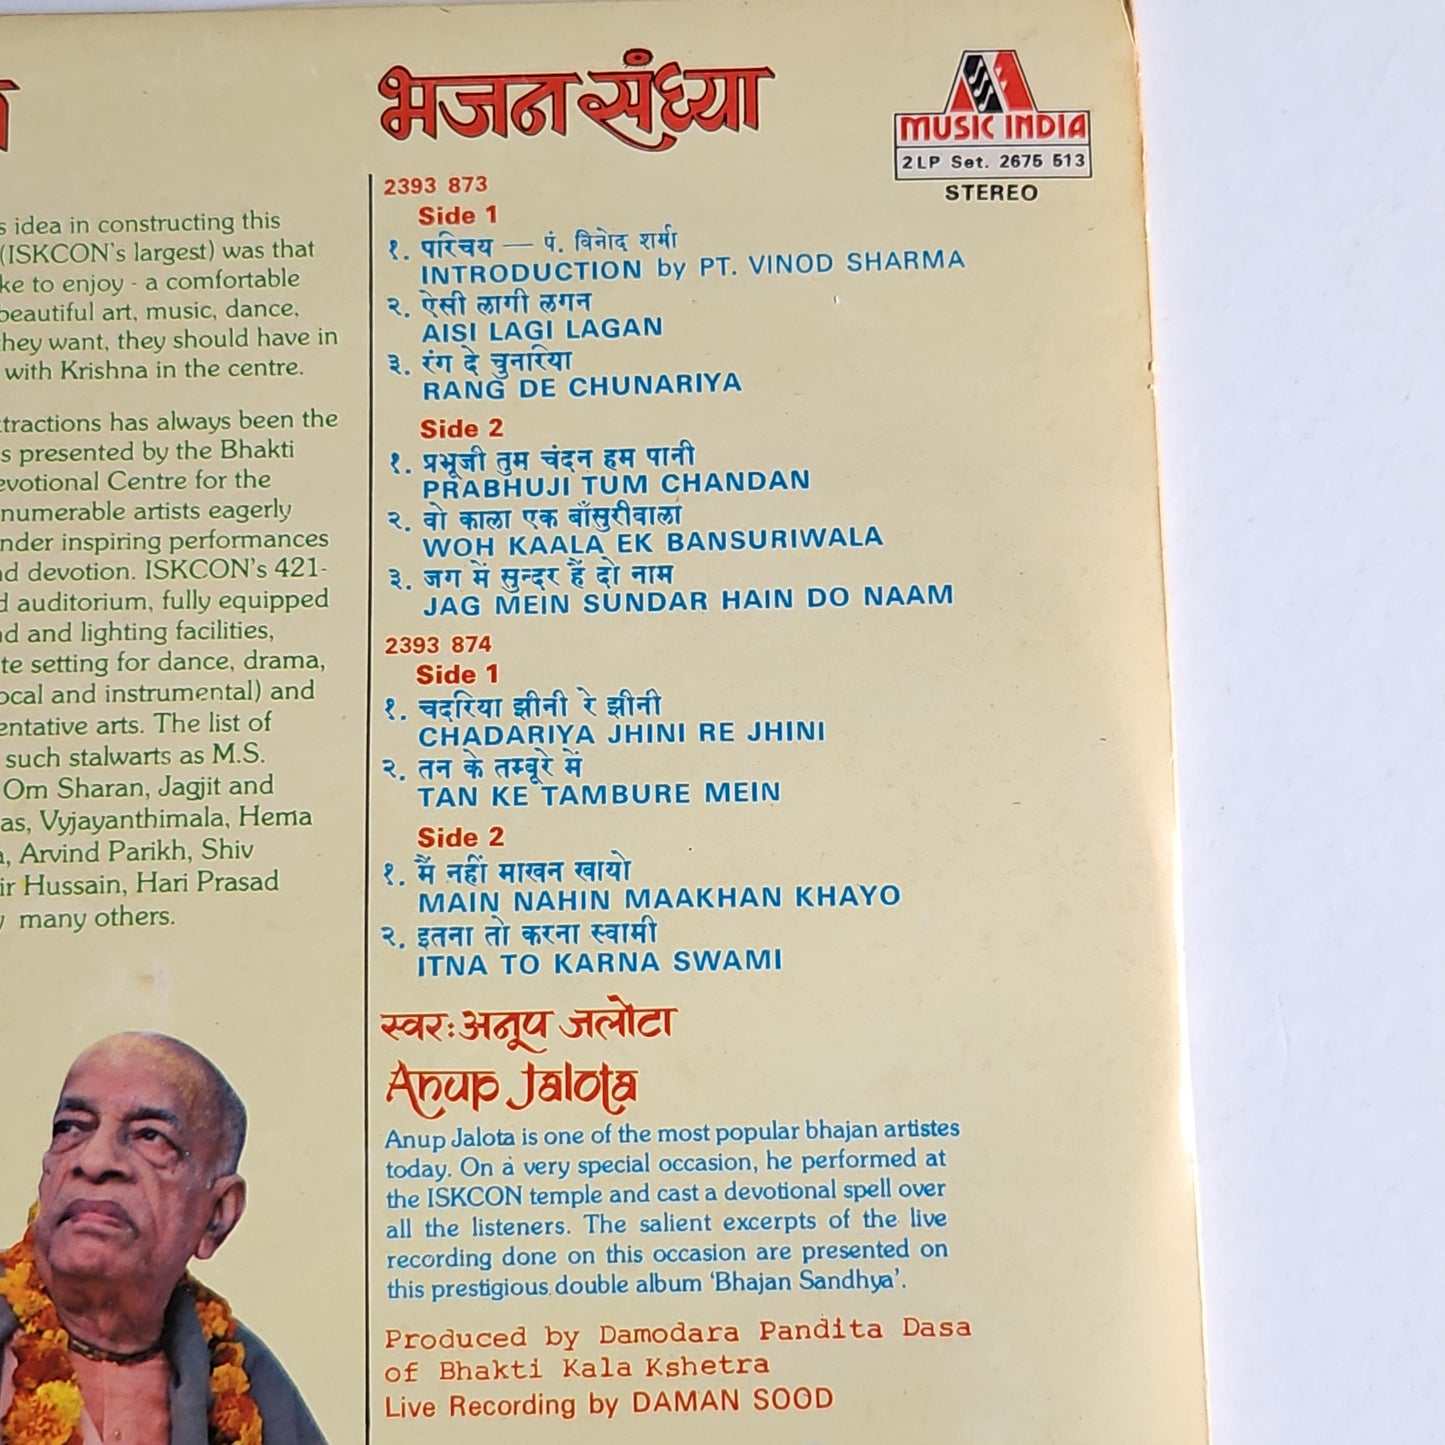 s idea in constructing this
(ISKCON's largest) was that
ke to enjoy - a comfortable
beautiful art, music, dance,
they want, they should have in
with Krishna in the centre.
tractions has always been the
s presented by the Bhakti
evotional Centre for the
numerable artists eagerly
nder inspiring performances
nd devotion. ISKCON's 421-
d auditorium, fully equipped
nd and lighting facilities,
te setting for dance, drama,
ocal and instrumental) and
entative arts. The list of
such stalwarts as M.S.
Om Sharan, Jagjit and
as, Vyjayanthimala, Hema
a, Arvind Parikh, Shiv
ir Hussain, Hari Prasad
y many others.
भजन संध्या
MUSIC INDIA
2 LP Set. 2675 513
STEREO
2393 873
Side 1
१. परिचय — पं. विनोद शर्मा
INTRODUCTION by PT. VINOD SHARMA
२. ऐसी लागी लगन
AISI LAGI LAGAN
३. रंग दे चुनरिया
RANG DE CHUNARIYA
Side 2
१. प्रभूजी तुम चंदन हम पानी
PRABHUJI TUM CHANDAN
२. वो काला एक बाँसुरीवाला
WOH KAALA EK BANSURIWALA
३. जग में सुन्दर हैं दो नाम
JAG MEIN SUNDAR HAIN DO NAAM
2393 874
Side 1
१. चदरिया झीनी रे झीनी
CHADARIYA JHINI RE JHINI
२. तन के तम्बूरे में
TAN KE TAMBURE MEIN
Side 2
१. मैं नहीं माखन खायो
MAIN NAHIN MAAKHAN KHAYO
२. इतना तो करना स्वामी
ITNA TO KARNA SWAMI
स्वर: अनूप जलोटा
Anup Jalota
Anup Jalota is one of the most popular bhajan artistes
today. On a very special occasion, he performed at
the ISKCON temple and cast a devotional spell over
all the listeners. The salient excerpts of the live
recording done on this occasion are presented on
this prestigious double album 'Bhajan Sandhya'.
Produced by Damodara Pandita Dasa
of Bhakti Kala Kshetra
Live Recording by DAMAN SOOD